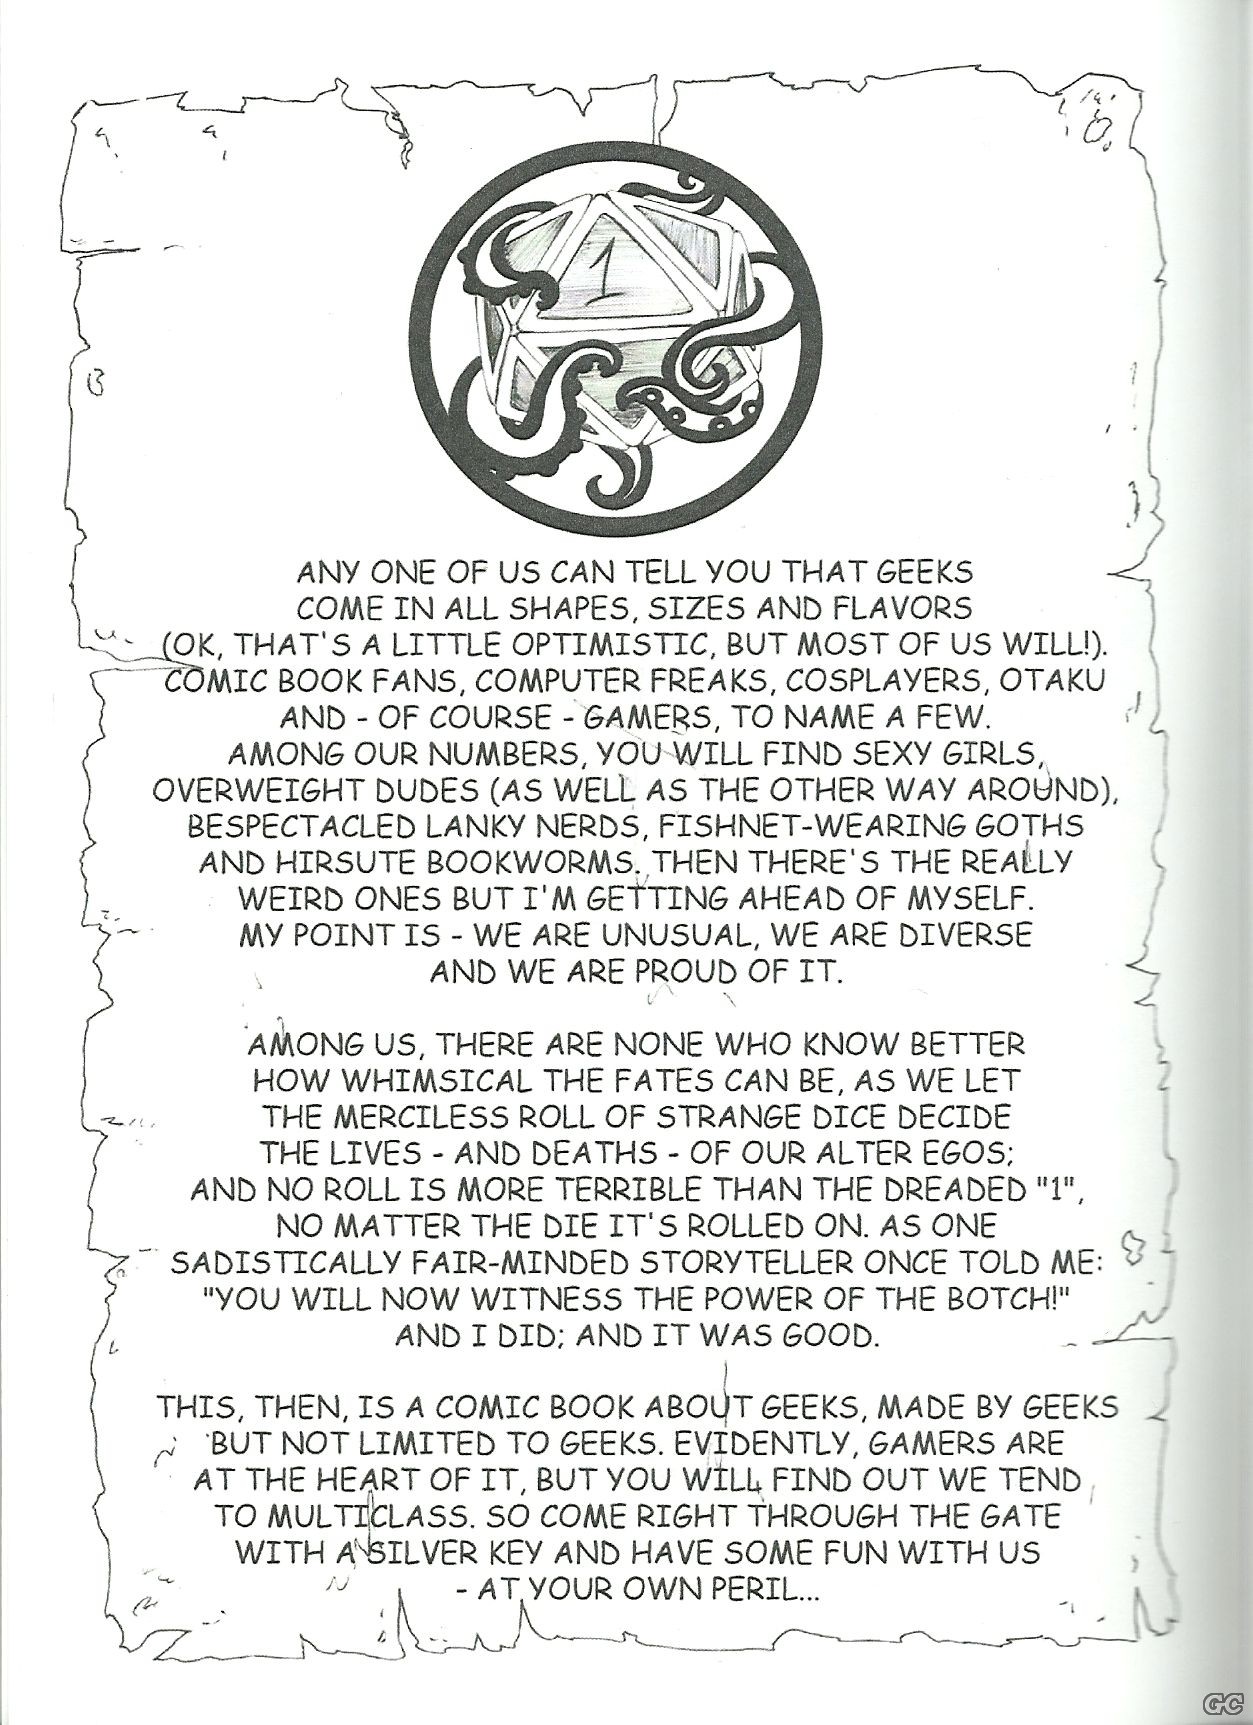 1
ANY ONE OF US CAN TELL YOU THAT GEEKS
COME IN ALL SHAPES, SIZES AND FLAVORS
(OK, THAT'S A LITTLE OPTIMISTIC, BUT MOST OF US WILL!).
COMIC BOOK FANS, COMPUTER FREAKS, COSPLAYERS, OTAKU
AND - OF COURSE - GAMERS, TO NAME A FEW.
AMONG OUR NUMBERS, YOU WILL FIND SEXY GIRLS,
OVERWEIGHT DUDES (AS WELL AS THE OTHER WAY AROUND),
BESPECTACLED LANKY NERDS, FISHNET-WEARING GOTHS
AND HIRSUTE BOOKWORMS. THEN THERE'S THE REALLY
WEIRD ONES BUT I'M GETTING AHEAD OF MYSELF.
MY POINT IS - WE ARE UNUSUAL, WE ARE DIVERSE
AND WE ARE PROUD OF IT.
AMONG US, THERE ARE NONE WHO KNOW BETTER
HOW WHIMSICAL THE FATES CAN BE, AS WE LET
THE MERCILESS ROLL OF STRANGE DICE DECIDE
THE LIVES - AND DEATHS - OF OUR ALTER EGOS;
AND NO ROLL IS MORE TERRIBLE THAN THE DREADED "1",
NO MATTER THE DIE IT'S ROLLED ON. AS ONE
SADISTICALLY FAIR-MINDED STORYTELLER ONCE TOLD ME:
"YOU WILL NOW WITNESS THE POWER OF THE BOTCH!"
AND I DID; AND IT WAS GOOD.
THIS, THEN, IS A COMIC BOOK ABOUT GEEKS, MADE BY GEEKS
BUT NOT LIMITED TO GEEKS. EVIDENTLY, GAMERS ARE
AT THE HEART OF IT, BUT YOU WILL FIND OUT WE TEND
TO MULTICLASS. SO COME RIGHT THROUGH THE GATE
WITH A SILVER KEY AND HAVE SOME FUN WITH US
- AT YOUR OWN PERIL...
GC